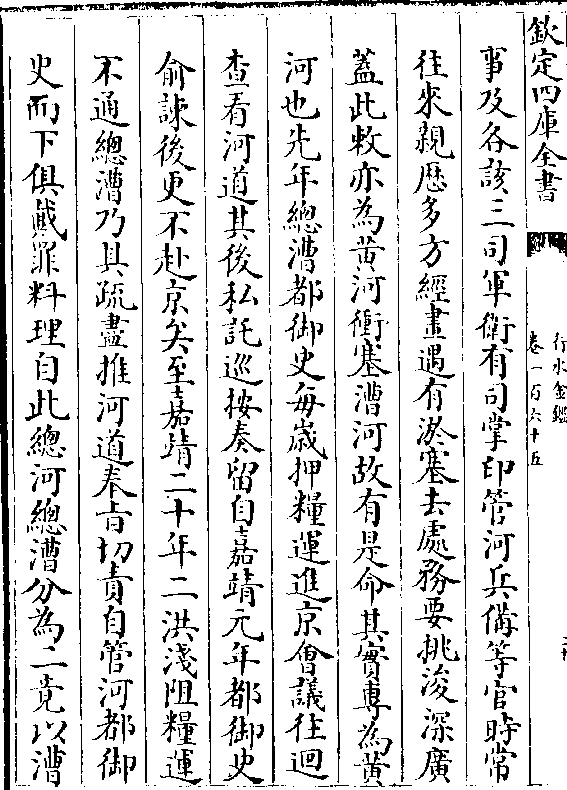 欽定四庫全書
行水金鑑
卷一百六十五
事及各該三司軍衛有司掌印管河兵備等官時常
往來親歷多方經畫遇有淤塞去處務要挑浚深廣
蓋此敕亦為黄河衝塞漕河故有是命其實專為黄
河也先年總漕都御史每歲押糧運進京會議往迴
查看河道其後私託巡按奏留自嘉靖元年都御史
俞諫後更不赴京矣至嘉靖二十年二洪淺阻糧運
不通總漕乃具疏盡推河道奉㫖切責自管河都御
史而下俱戴罪料理自此總河總漕分為二竟以漕